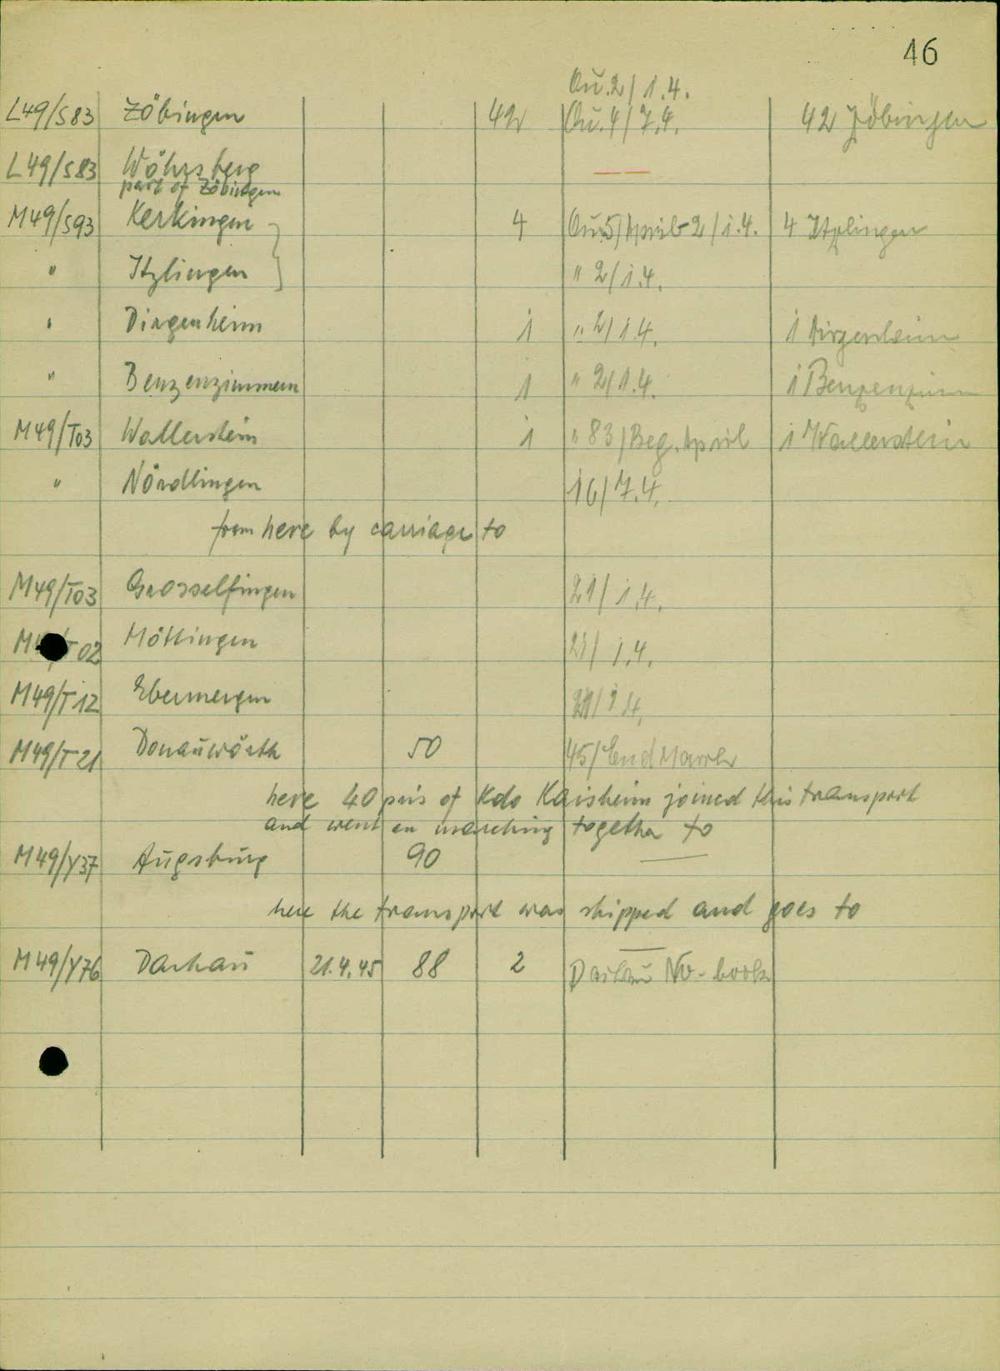 46
Qu. 2/1.4.
L49/S83 Zöbingen 42 Qu. 4/7.4. 42 Zöbingen
L49/S83 Wöhrsberg —
part of Zöbingen
M49/S93 Kerkingen 4 Qu 5/April - 2/1.4. 4 Itzlingen
" Itzlingen " 2/1.4.
" Dirgenheim 1 " 2/1.4. 1 Dirgenheim
" Benzenzimmern 1 " 2/1.4. 1 Benzenzimm
M49/T03 Wallerstein 1 " 83/Beg. April 1 Wallerstein
" Nördlingen 16/7.4.
from here by carriage to
M49/T03 Grosselfingen 21/1.4.
02 Möttingen 21/1.4.
M49/T12 Ebermergen 4.
M49/T21 Donauwörth 50 45/End March
here 40 pris of Kdo Kaisheim joined this transport
and went on marching together to
M49/Y37 Augsburg 90 —
here the transport was shipped and goes to
M49/Y76 Dachau 21.4.45 88 2 Dachau No-book